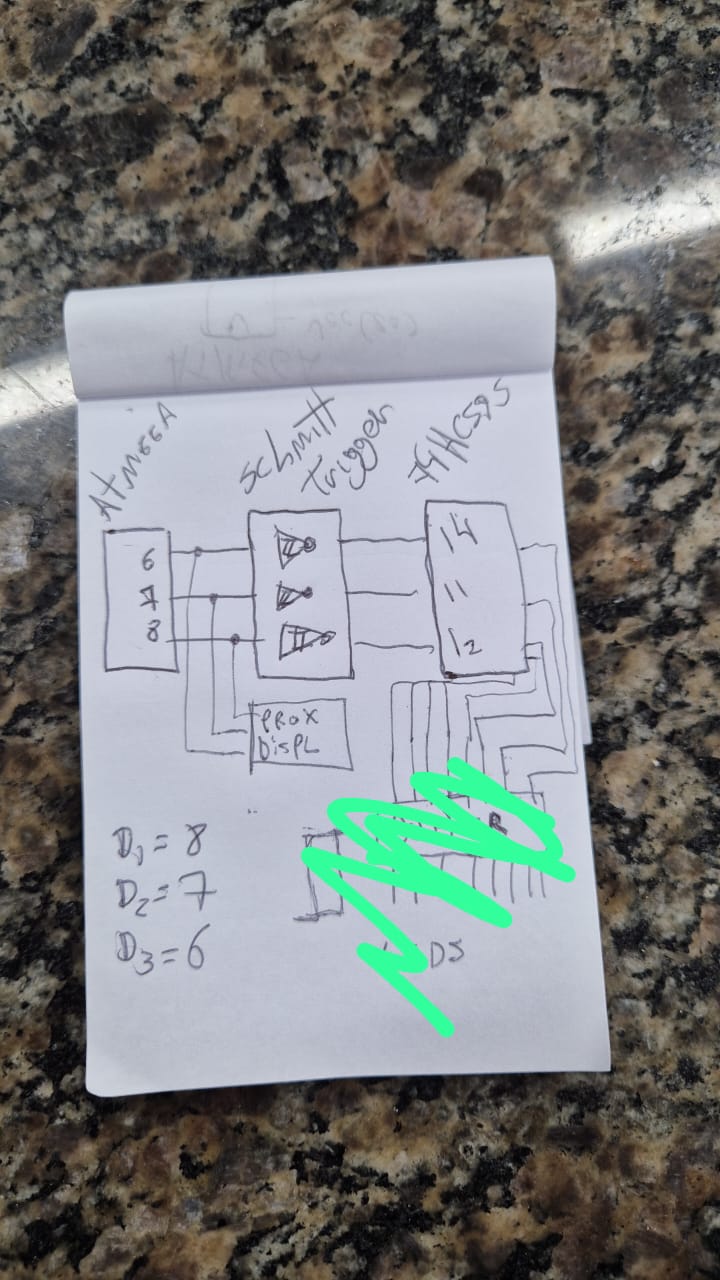 ATMEGA
Schmitt
Trigger
74HC595
6
7
8
14
11
12
PROX
DISPL
R
D1 = 8
D2 = 7
D3 = 6
DS